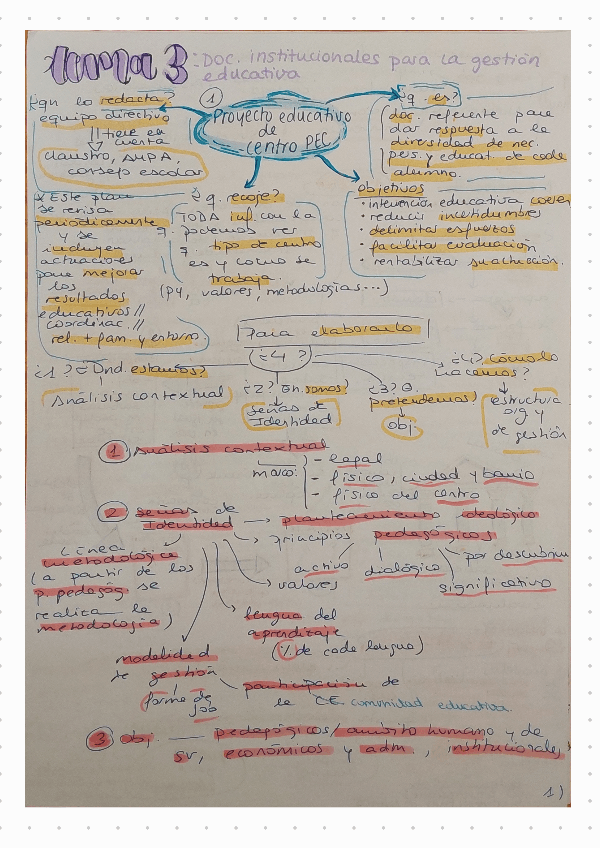 Tema 3: Doc. institucionales para la gestión
educativa
¿Qn lo redacta?
equipo directivo
tiene en
cuenta
claustro, AMPA,
consejo escolar
1
Proyecto educativo
de
centro PEC
¿q. es?
doc. referente para
dar respuesta a la
diversidad de nec.
pers. y educat. de cada
alumno.
* Este plan
se revisa
periódicamente
y se
incluyen
actuaciones
para mejorar
los
resultados
educativos //
coordinac. //
rel. + fam. y entorno.
¿q. recoje?
TODA inf. con la
q. podemos ver
q. tipo de centro
es y como se
trabaja.
(P4, valores, metodologías...)
objetivos
· intervención educativa
· reducir incertidumbres
· delimitar esfuerzos
· facilitar evaluación
· rentabilizar su actuación.
Para elaborarlo
¿4?
¿1? ¿Dnd. estamos?
Análisis contextual
¿2? Qn. somos?
señas de
Identidad
¿3? Q.
pretendemos?
obj.
¿4? Cómo lo
hacemos?
estructura
org y
de gestión
1 Análisis contextual
marco:
- legal
- físico, ciudad y barrio
- físico del centro
2 señas de
Identidad → planteamiento ideológico
principios pedagógicos
activo
dialógico
significativo
por descubrim
Línea
metodológica
(a partir de los
p. pedagog se
realiza la
metodología)
valores
lengua del
aprendizaje
(% de cada lengua)
modelidad
de gestión
forma de
job
participación de
la CE comunidad educativa.
3 obj — pedagógicos / ámbito humano y de
sv, económicos y adm., institucionales
1)